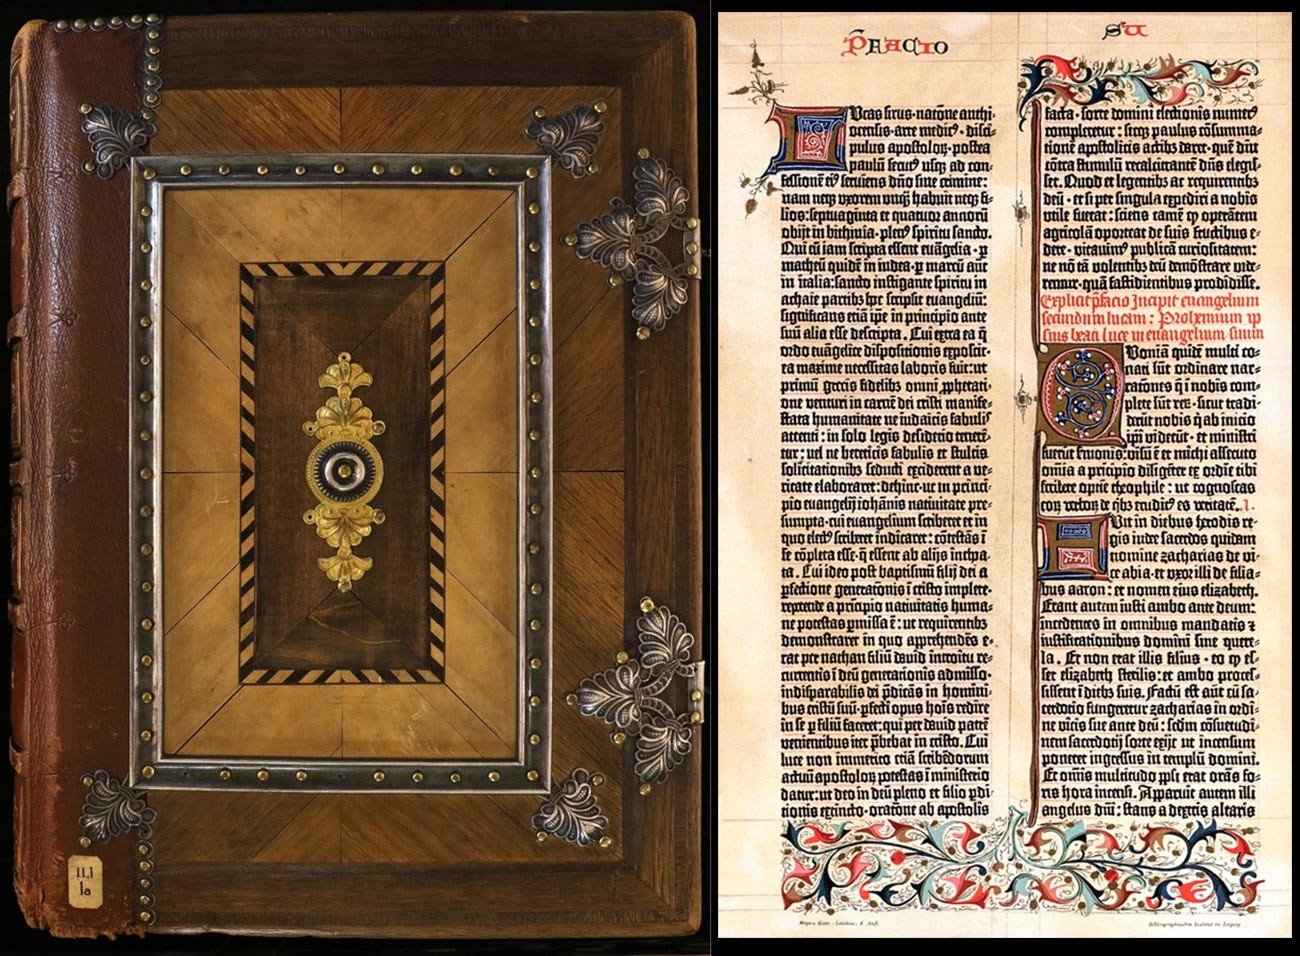 II,1
1a
P̄FACIO
SU
Lucas sirus·natōne anthi-
ocensis·arte medicꝰ·disci-
pulus apostoloꝝ·postea
paulū secutꝰ usqꝫ ad con-
fessionē eiꝰ serviens dño sine crimine:
nam neqꝫ uxorem unqꝫ habuit neqꝫ fi-
lios: septuaginta et quatuor annorū
obijt in bithinia·plenꝰ spiritu sancto.
Qui cū iam scripta essent euāgelia·ꝑ
matheū quidē in iudea·ꝑ marcū aūt
in italia: sancto instigante spiritu in
achaie partibꝫ hoc scripsit euangeliū:
significans etiā ipē in principio ante
suū alia esse descripta. Cui extra ea q̄
ordo euāgelice dispositionis exposcit·
ea maxime necessitas laboris fuit: ut
primū grecis fidelibꝫ omni ꝓphetati-
one venturi in carnē dei cristi manife-
stata humanitate ne iudaicis fabulis
attenti: in solo legis desiderio tenerē-
tur: vel ne hereticis fabulis et stultis
solicitationibꝫ seducti exciderent a ve-
ritate elaboraret: dehinc·ut in princi-
pio euangelij iohānis nativitate pre-
sumpta·cui euangelium scriberet et in
quo electꝰ scriberet indicaret: cōtestās ī
se cōpleta esse·q̄ essent ab alijs inchoa-
ta. Cui ideo post baptismū filij dei a
ꝑfectione generatōnis ī cristo implete·
repetende a prīcipio nativitatis huma-
ne potestas ꝑmissa ē: ut requirentibꝫ
demonstraret in quo apprehendēs e-
rat per nathan filiū david introitu re-
currentis ī deū generationis admisso·
indisparabilis dei p̄dicās in homini-
bus cristū suū·ꝑfecti opus hoīs redire
in se ꝑ filiū faceret: qui per david patrē
venientibus iter p̄bebat in cristo. Cui
luce non immerito etiā scribēdorum
actuū apostoloꝝ potestas ī ministerio
datur: ut deo in deū pleno et filio ꝓdi-
tionis extincto·oratōne ab apostolis
facta·sorte domini electionis numerꝰ
compleretur: sicqꝫ paulus cōsumma-
tionē apostolicis actibꝫ daret·quē diu
cōtra stimulū recalcitrantē dñs elegis-
set. Quod et legentibꝫ ac requirentibꝫ
deū·etsi per singula expediri a nobis
utile fuerat: sciens tamē qꝫ operātem
agricolā oporteat de suis fructibus e-
dere·vitavimꝰ publicā curiositatem:
ne nō tā volentibꝫ deū demōstrare vide-
remur·quā fastidientibus prodidisse.
Explicit p̄facio Incipit euangelium
secundum lucam: Prohemium ip-
sius beati luce in euangelium suum
Quoniā quidē multi co-
nati sūt ordinare nar-
rationes q̄ ī nobis com-
plete sūt reꝝ·sicut tradi-
derūt nobis q̇ ab inicio
ip̄i viderūt·et ministri
fuerūt ſmonis: visū ē et michi assecuto
omīa a prīcipio diligēter ex ordīe tibi
scribere optīe theophile: ut cognoscas
eoꝝ verboꝝ de q̇bꝫ eruditꝰ es veritatē. I.
Fuit in diebus herodis re-
gis iude sacerdos quidam
nomine zacharias de vi-
ce abia·et uxor illi de filia-
bus aaron: et nomen eius elizabeth.
Erant autem iusti ambo ante deum:
incedentes in omnibus mandatis et
iustificationibus domini sine quere-
la. Et non erat illis filius·eo qꝫ es-
set elizabeth sterilis: et ambo proces-
sissent ī diebꝫ suis. Factū est aūt cū sa-
cerdotio fungeretur zacharias in ordi-
ne vicis sue ante deū: scdm cōsuetudi-
nem sacerdotij sorte exijt ut incensum
poneret ingressus in templū domini.
Et omīs multitudo ppli erat orās fo-
ris hora incensi. Apparuit autem illi
angelus dñi: stans a dextris altaris
Meyers Konv.-Lexikon, 4. Aufl.
Bibliographisches Institut in Leipzig